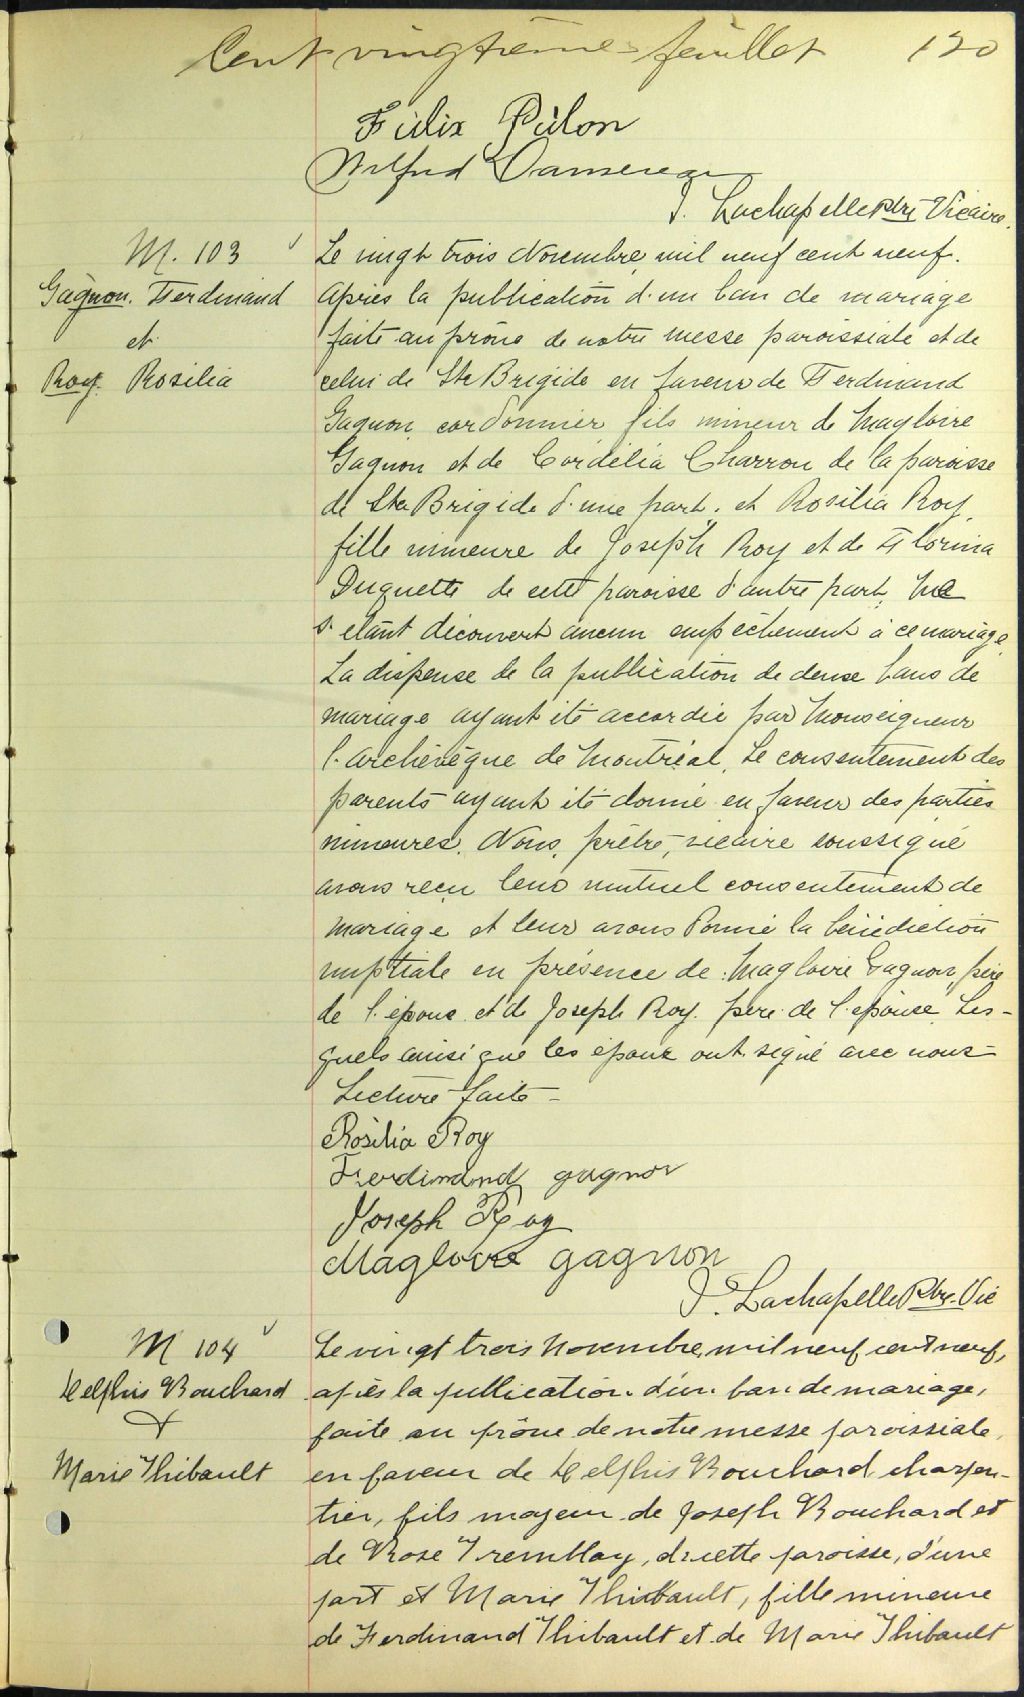 Cent vingtième feuillet 120
Félix Pilon
Wilfrid Dansereau
J. Lachapelle Ptre Vicaire.
M. 103
Gagnon. Ferdinand
et
Roy. Rosilia
Le vingt trois Novembre mil neuf cent neuf.
Après la publication d'un ban de mariage
faite au prône de notre messe paroissiale et de
celui de Ste Brigide en faveur de Ferdinand
Gagnon, cordonnier fils mineur de Magloire
Gagnon et de Cordélia Charron de la paroisse
de Ste Brigide d'une part. et Rosilia Roy,
fille mineure de Joseph Roy et de Florina
Duquette de cette paroisse d'autre part, Ne
s'étant découvert aucun empêchement à ce mariage
La dispense de la publication de deux bans de
mariage ayant été accordée par Monseigneur
l'archevêque de Montréal, Le consentement des
parents ayant été donné en faveur des parties
mineures. Nous, prêtre, vicaire soussigné
avons reçu leur mutuel consentement de
mariage et leur avons donné la bénédiction
nuptiale en présence de Magloire Gagnon, père
de l'époux et de Joseph Roy père de l'épouse. Les-
quels ainsi que les époux ont signé avec nous-
Lecture faite-
Rosilia Roy
Ferdinand gagnon
Joseph Roy
Magloire gagnon
J. Lachapelle Ptre. Vic
M 104
Delphis Bouchard
&
Marie Thibault
Le vingt trois Novembre, mil neuf cent neuf,
après la publication d'un ban de mariage,
faite au prône de notre messe paroissiale,
en faveur de Delphis Bouchard, charpen-
tier, fils majeur de Joseph Bouchard et
de Rose Tremblay, de cette paroisse, d'une
part et Marie Thibault, fille mineure
de Ferdinand Thibault et de Marie Thibault